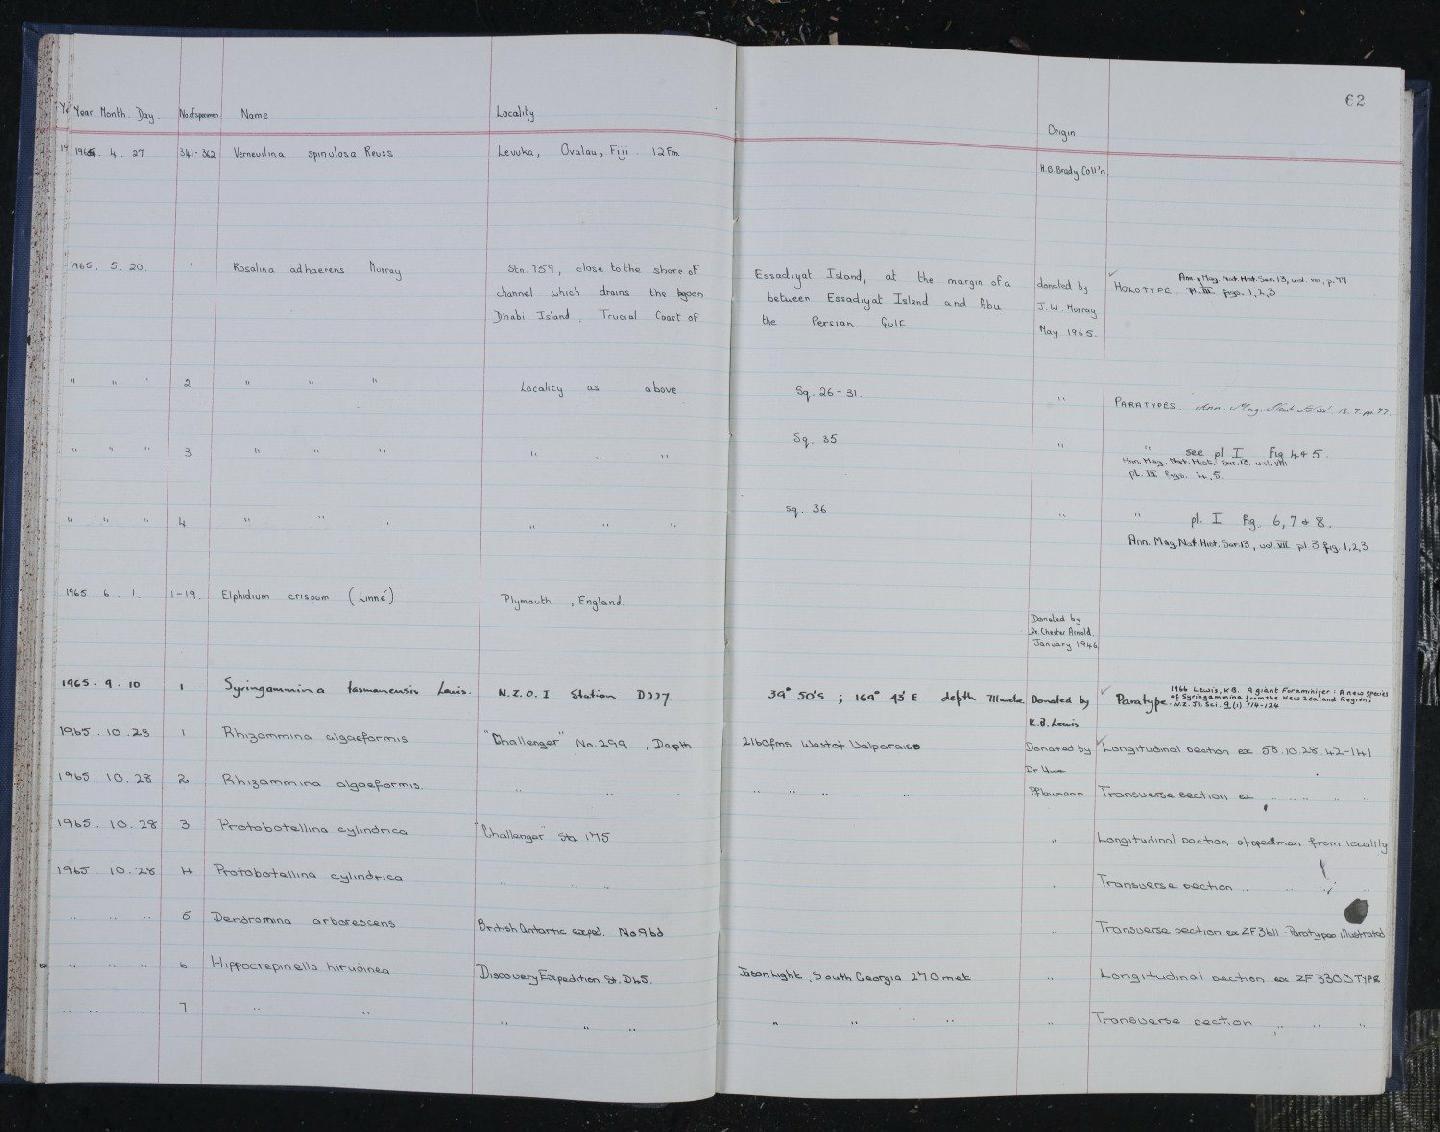 62
Year Month. Day. No. of specimen Name Locality Origin
1965. 4. 27 341-362 Verneuilina spinulosa Reuss Levuka, Ovalau, Fiji. 12 Fm
H.B. Brady Coll'n.
1965. 5. 20. Rosalina adhaerens Murray Stn. 759, close to the shore of Essadiyat Island, at the margin of a donated by HOLOTYPE. Ann. Mag. Nat. Hist. Ser. 13, vol. VIII, p. 77
channel which drains the lagoon between Essadiyat Island and Abu J.W. Murray figs. 1,2,3
Dhabi Island. Trucial Coast of the Persian Gulf May 1965.
" " " 2 " " " Locality as above Sq. 26-31. " PARATYPES. Ann. Mag. Nat. Hist.
" " " 3 " " " " " Sq. 35 " " see pl I Fig 4 & 5.
Ann. Mag. Nat. Hist. Ser. 13. vol. VIII
pl. figs. 4, 5.
" " " 4 " " " " " " sq. 36 " " pl. I fig. 6, 7 & 8.
Ann. Mag. Nat. Hist. Ser. 13, vol. VII pl. 3 fig. 1,2,3
1965 6. 1. 1-19. Elphidium crispum (Linné) Plymouth, England.
Donated by
Dr. Chester Arnold.
January 1946
1965. 9. 10 1 Syringammina tasmanensis Lewis. N.Z.O.I Station D227 39° 50's ; 169° 43' E depth Donated by Paratype 1966 Lewis, K.B. A giant Foraminifer: A new species
of Syringammina from the New Zealand Region.
N.Z. Jl. Sci. 9 (1) 114-124
K.B. Lewis
1965. 10. 28 1 Rhizammina algaeformis "Challenger" No. 299, Depth 2160 fms West of Valparaiso Donated by Longitudinal section ex 58.10.28.42-141
1965 10. 28 2 Rhizammina algaeformis. " " " " " " " Dr Uwe Pflaumann Transverse section ex " " " "
1965. 10. 28 3 Protobotellina cylindrica "Challenger" Sta 175 " Longitudinal section of specimen from locality
1965 10. 28 4 Protobotellina cylindrica " " " " Transverse section " " "
" " " 5 Dendromina arborescens British Antarctic exped. No 96d " Transverse section ex ZF 3611 Paratypes illustrated
" " " 6 Hippocrepinella hirudinea Discovery Expedition St. D45. Jason Light, South Georgia 270 met " Longitudinal section ex ZF 3303 TYPE
" " 7 " " " " " " " " " " Transverse section " " "